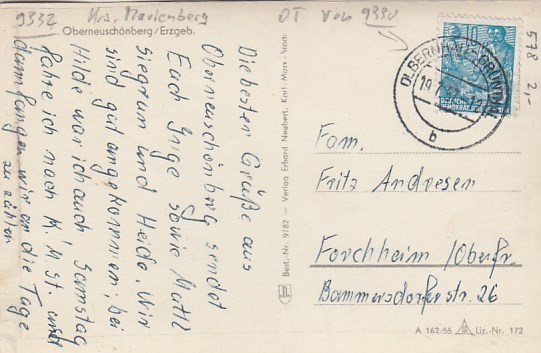 9332 Krs. Marienberg
OT von 9330
Oberneuschönberg/Erzgeb.
Die besten Grüße aus
Oberneuschönberg sendet
Euch Inge sowie Matth
Siegrun und Heide. Wir
sind gut angekommen, bei
Hilde war ich auch. Samstag
fahre ich nach K. M. St. und
dann fangen wir an die Tage
zu zählen
Best.-Nr. 9/82 – Verlag Erhard Neubert, Karl-Marx-Stadt
OLBERNHAU-GRÜNTHAL
b
DEUTSCHE
578 2,-
Fam.
Fritz Andresen
Forchheim /Oberfr.
Bammersdorfer str. 26
A 162/55 Liz.-Nr. 172